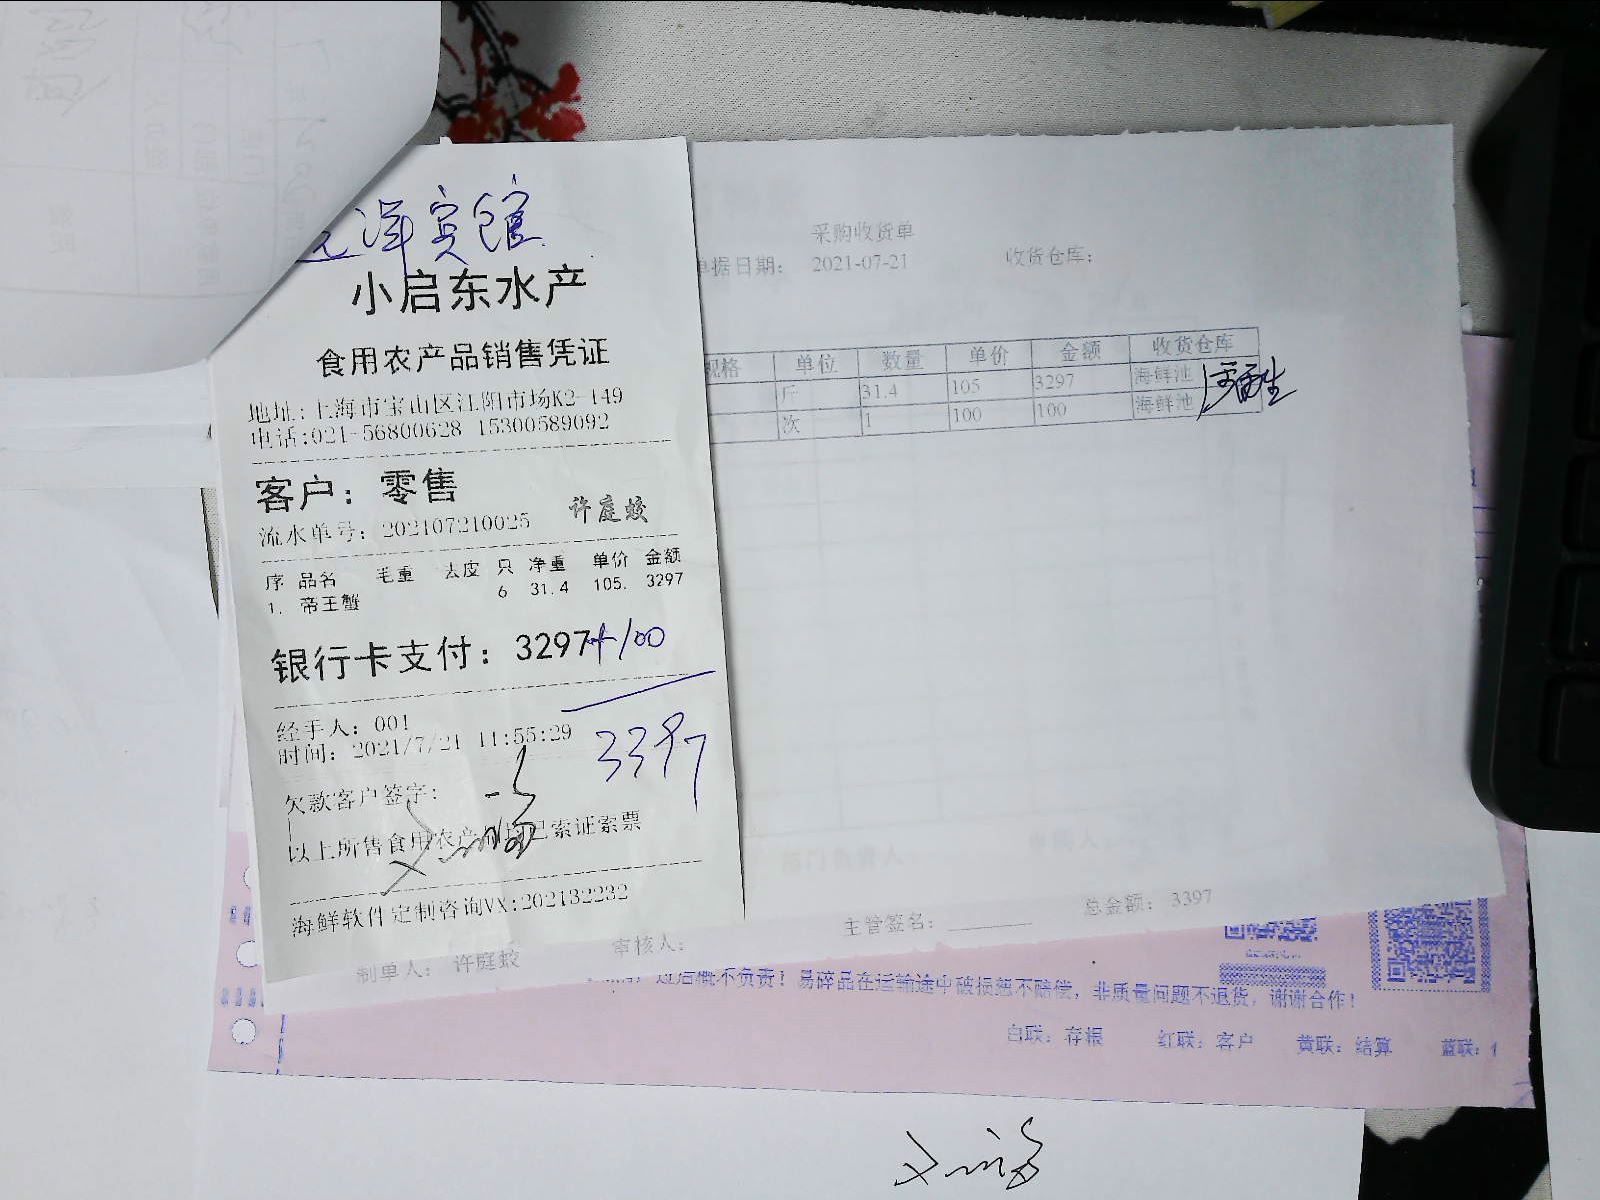 洋宾馆
小启东水产
食用农产品销售凭证
地址:上海市宝山区江阳市场K2-149
电话:021-56800628 15300589092
客户: 零售
流水单号: 202107210025 许庭蛟
序 品名 毛重 去皮 只 净重 单价 金额
1. 帝王蟹 6 31.4 105. 3297
银行卡支付: 3297+100
3397
经手人: 001
时间: 2021/7/21 11:55:29
欠款客户签字:
以上所售食用农产品均已索证索票
海鲜软件定制咨询VX:202132232
采购收货单
单据日期: 2021-07-21 收货仓库:
规格 单位 数量 单价 金额 收货仓库
斤 31.4 105 3297 海鲜池
次 1 100 100 海鲜池
制单人: 许庭蛟 审核人: 主管签名: 总金额: 3397
概不负责! 易碎品在运输途中破损恕不赔偿, 非质量问题不退货, 谢谢合作!
白联: 存根 红联: 客户 黄联: 结算 蓝联: